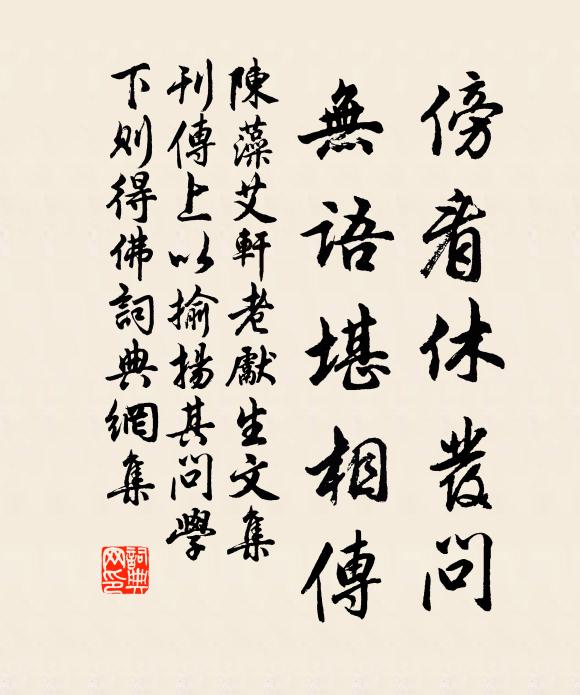 傍看休發問
無語堪相傳
陳藻艾軒老獻生文集
刊傳上以揄揚其問學
下則得佛詞典網集
詞典網印